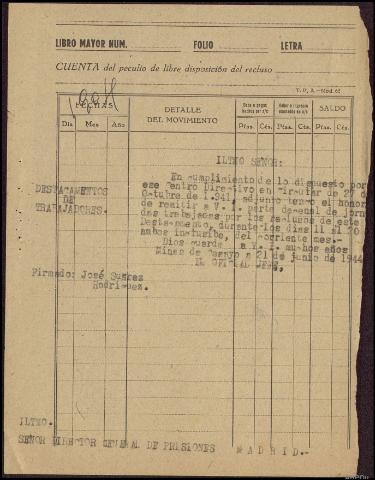 LIBRO MAYOR NUM. FOLIO LETRA
CUENTA del peculio de libre disposición del recluso
T. P. A.-Mod. 62
FECHAS
Día Mes Año
DETALLE
DEL MOVIMIENTO
Ptas. Cts. Ptas. Cts.
SALDO
Ptas. Cts.
ILTMO SEÑOR:
En cumplimiento de lo dispuesto por
ese Centro Directivo en Circular de 27 de
Octubre de 1.941, adjunto tengo el honor
de remitir a V.I. parte decenal de jorna
das trabajadas por los reclusos de este
Destacamento, durante los dias 11 al 20
ambos inclusibe, del corriente mes.-
Dios guarde a V. I. muchos años
Minas de a 21 de junio de 1944
EL OFICIAL JEFE,
DESTACAMENTOS
DE
TRABAJADORES.
Firmado: José Suarez
Rodriguez.
ILTMO.
SEÑOR DIRECTOR GENERAL DE PRISIONES MADRID.-